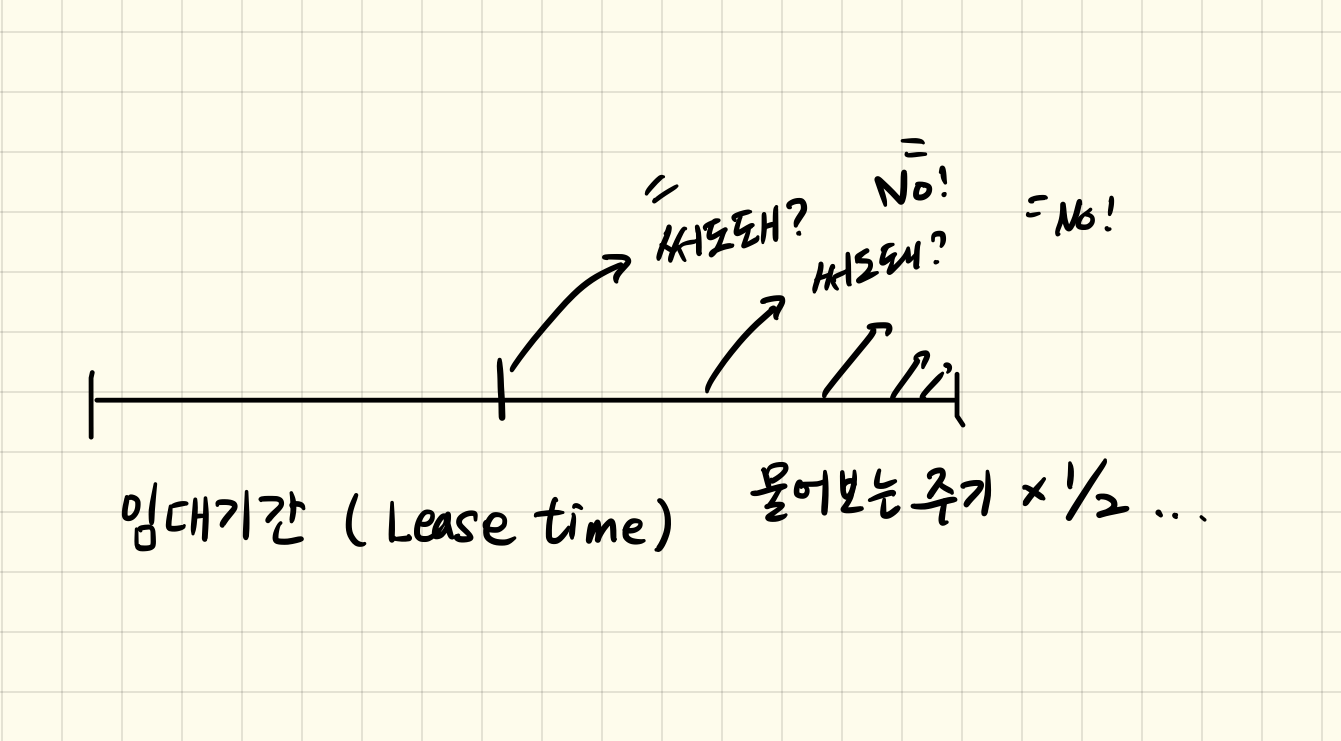 No!
써도돼?
No!
써도돼?
임대기간 (Lease time)
물어보는 주기 × 1/2 ...